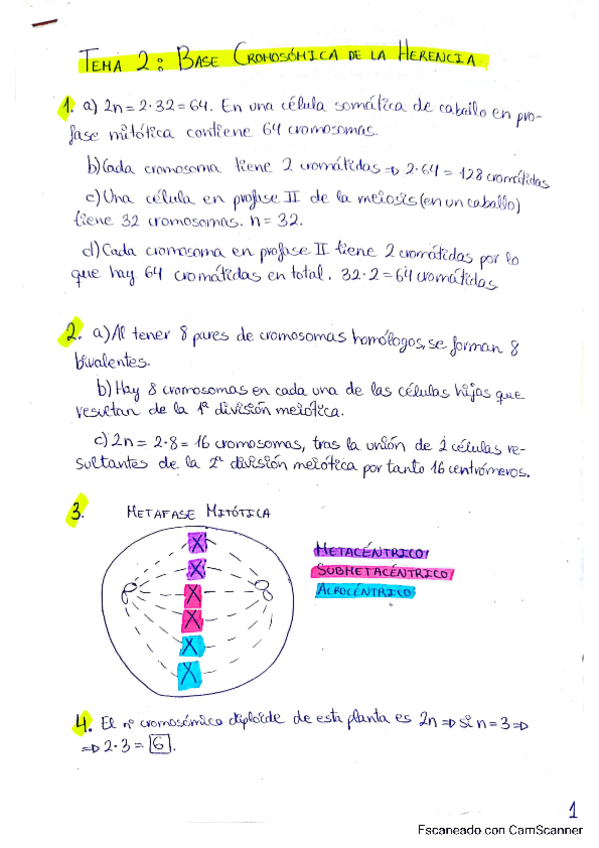 TEMA 2: BASE CROMOSÓMICA DE LA HERENCIA
1. a) 2n = 2·32 = 64. En una célula somática de caballo en pro-
fase mitótica contiene 64 cromosomas.
b) Cada cromosoma tiene 2 cromátidas => 2·64 = 128 cromátidas
c) Una célula en profase II de la meiosis (en un caballo)
tiene 32 cromosomas. n = 32.
d) Cada cromosoma en profase II tiene 2 cromátidas por lo
que hay 64 cromátidas en total. 32·2 = 64 cromátidas
2. a) Al tener 8 pares de cromosomas homólogos, se forman 8
bivalentes.
b) Hay 8 cromosomas en cada una de las células hijas que
resultan de la 1ª división meiótica.
c) 2n = 2·8 = 16 cromosomas, tras la unión de 2 células re-
sultantes de la 2ª división meiótica por tanto 16 centrómeros.
3. METAFASE MITÓTICA
METACÉNTRICO
SUBMETACÉNTRICO
ACROCÉNTRICO
4. El nº cromosómico diploide de esta planta es 2n => si n = 3 =>
=> 2·3 = 6.
1
Escaneado con CamScanner